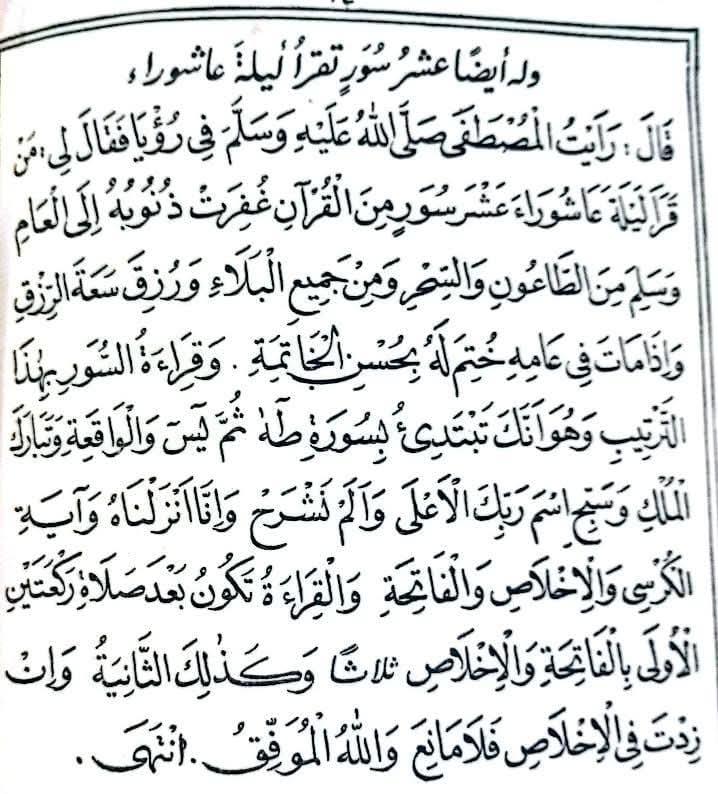 وله أيضًا عشر سُوَرٍ تقرأ ليلة عاشوراء
قَالَ : رَأَيْتُ الْمُصْطَفَى صَلَّى اللهُ عَلَيْهِ وَسَلَّمَ فِى رُؤْيَا فَقَالَ لِى : مَنْ
قَرَأَ لَيْلَةَ عَاشُورَاءَ عَشْرَ سُوَرٍ مِنَ الْقُرْآنِ غُفِرَتْ ذُنُوبُهُ إِلَى الْعَامِ
وَسَلِمَ مِنَ الطَّاعُونِ وَالسِّحْرِ وَمِنْ جَمِيعِ الْبَلَاءِ وَرُزِقَ سَعَةَ الرِّزْقِ
وَإِذَا مَاتَ فِى عَامِهِ خُتِمَ لَهُ بِحُسْنِ الْخَاتِمَةِ . وَقِرَاءَةُ السُّوَرِ بِهٰذَا
التَّرْتِيبِ وَهُوَ أَنَّكَ تَبْتَدِئُ بِسُورَةِ طٰهٰ ثُمَّ يٰسٓ وَالْوَاقِعَةِ وَتَبَارَكَ
الْمُلْكِ وَسَبِّحِ اسْمَ رَبِّكَ الْأَعْلَى وَأَلَمْ نَشْرَحْ وَإِنَّا أَنْزَلْنَاهُ وَآيَةِ
الْكُرْسِى وَالْإِخْلَاصِ وَالْفَاتِحَةِ وَالْقِرَاءَةُ تَكُونُ بَعْدَ صَلَاةِ رَكْعَتَيْنِ
الْأُولَى بِالْفَاتِحَةِ وَالْإِخْلَاصِ ثلاثًا وَكَذٰلِكَ الثَّانِيَةُ وَإِنْ
زِدْتَ فِى الْإِخْلَاصِ فَلَا مَانِعَ وَاللهُ الْمُوَفِّقُ . انْتَهَى .